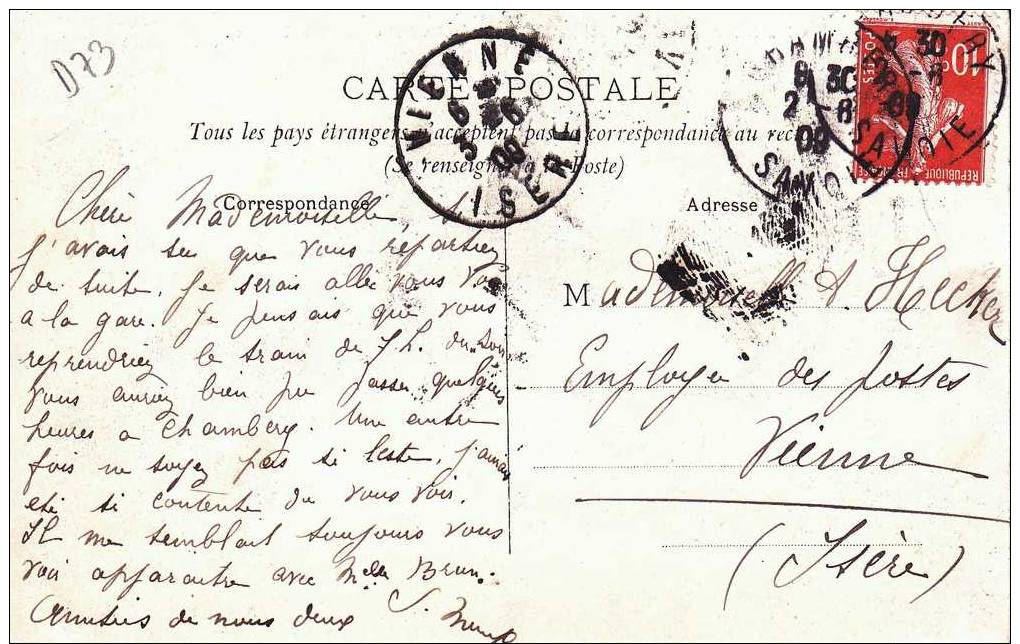 D73
CARTE POSTALE
Tous les pays étrangers n'acceptent pas la correspondance au rec
(Se renseigner à la Poste)
VIENNE
6 3 -8 09
ISERE
CHAMBERY
8 30
2 -8
09
SAVOIE
10c
POSTES
REPUBLIQUE FRANÇAISE
Correspondance
Adresse
Chère Mademoiselle, si
j'avais su que vous repartiez
de suite, je serais allée vous voir
a la gare. Je pensais que vous
reprendriez le train de 7h. du soir
vous auriez bien pu passer quelques
heures a Chambery. Une autre
fois ne soyez pas si leste, j'aurais
été si contente de vous voir.
Il me semblait toujours vous
voir apparaitre avec Melle Brun.
Amitiés de nous deux
Mademoiselle A Hecker
Employée des postes
Vienne
(Isère)